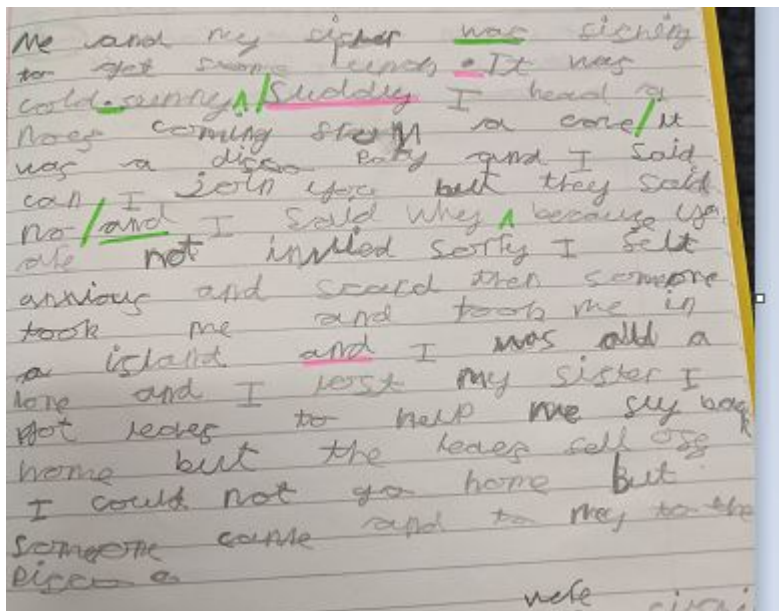 Me and my sister was fishing
to get some lunch. It was
cold. sunny / suddly I heard a
noes coming from a cave / it
was a disco Paty and I said
can I join you but they said
no / and I said why because you
are not invited sorry I felt
anxious and scard then someone
took me and took me in
a island and I was all a
lone and I lost my sister I
got leaves to help me fly back
home but the leaves fell off
I could not go home But
someone came and to they to the
Disco
were